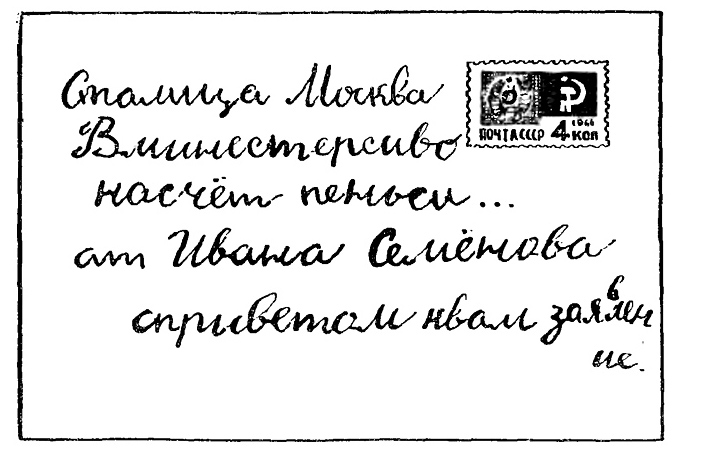 Сталица Москва
Вминестерсиво
насчёт пеньси...
ат Ивана Семёнова
сприветом квам заявлен
ие.
ПОЧТА СССР 4 КОП
1966